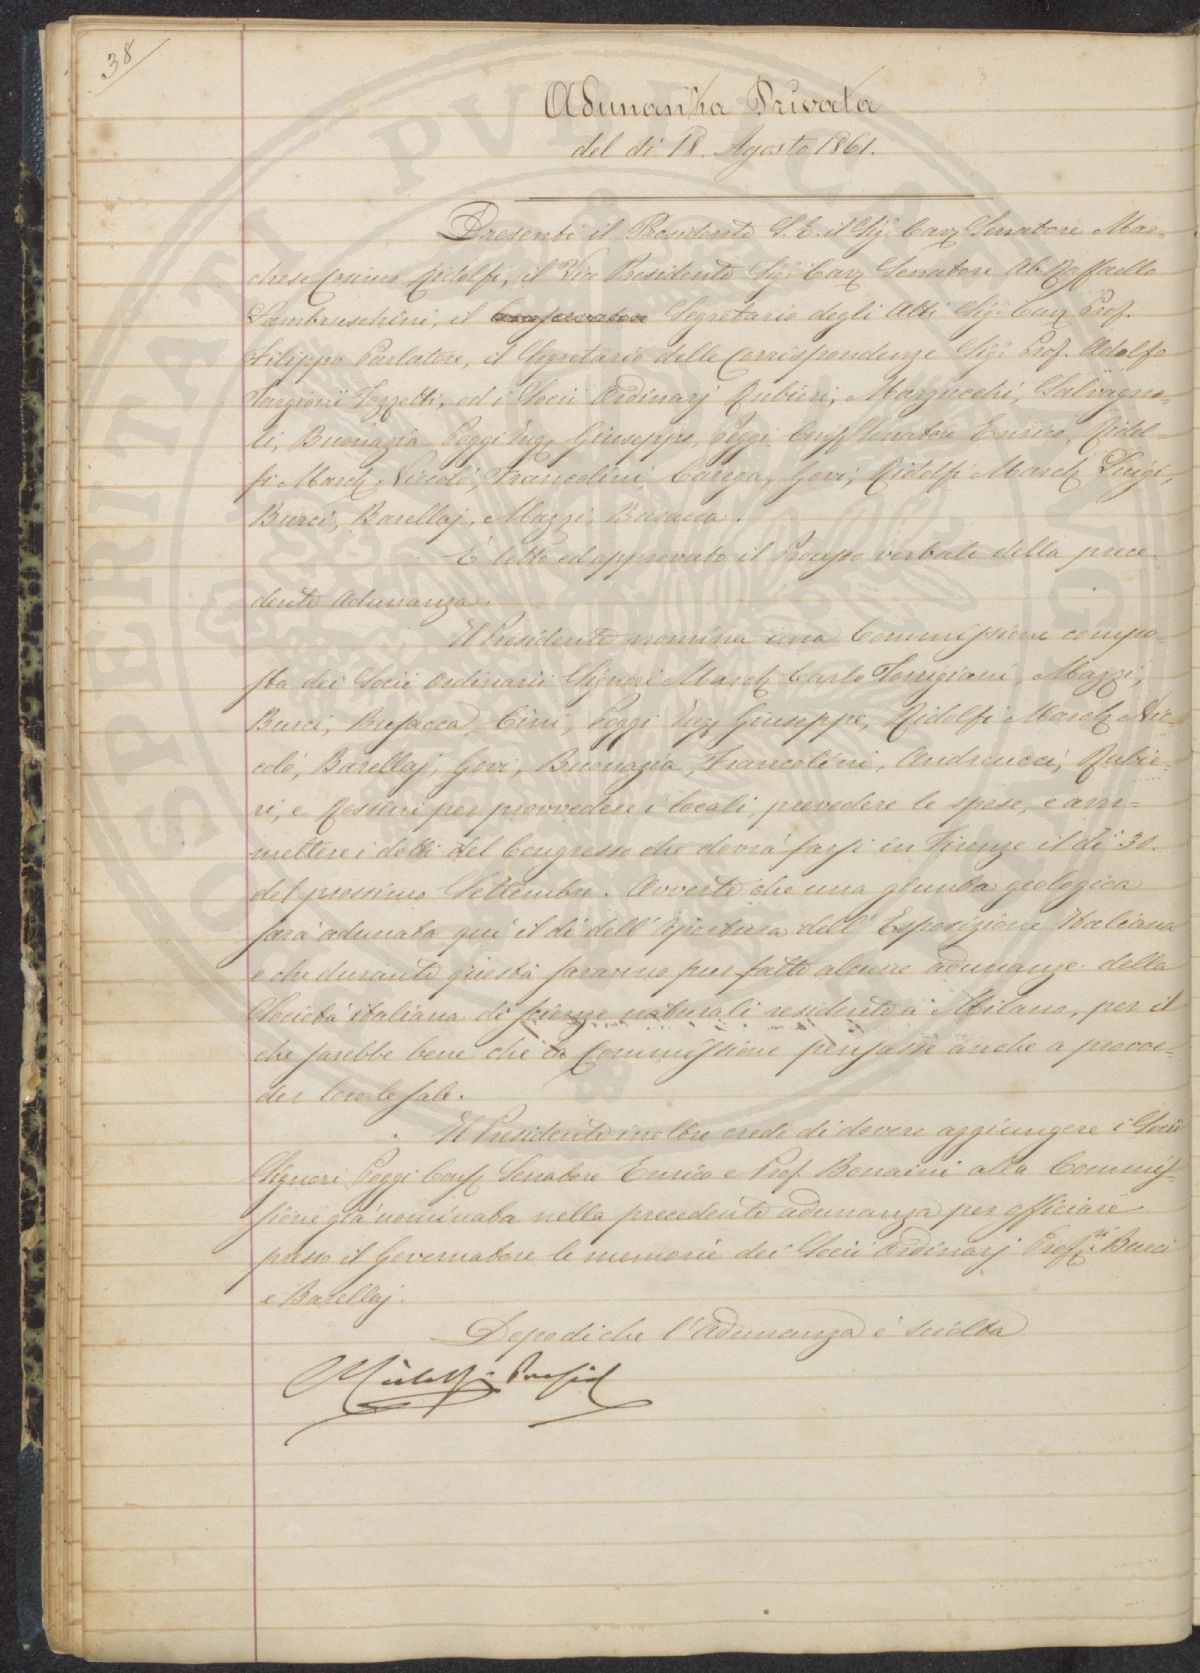 38
Adunanza Privata
del dì 18. Agosto 1861.
Presenti il Presidente S. E. il Sig: Cav Senatore Mar=
chese Cosimo Ridolfi, il Vice Presidente Sig: Cav Senatore Ab. Raffaello
Lambruschini, il Conservatore Segretario degli Atti Sig: Cav Prof.
Filippo Parlatore, il Segretario delle Corrispondenze Sig: Prof. Adolfo
Targioni Tozzetti, ed i Socii Ordinarj Rubieri, Marzucchi, Salvagno=
li, Buonazia, Poggi Ing Giuseppe, Poggi Cons Senatore Enrico, Ridol=
fi March Niccolò, Francolini, Carega, Govi, Ridolfi March Luigi,
Burci, Barellaj, Mazzi, Busacca.
È letto ed approvato il Processo verbale della prece=
dente Adunanza.
Il Presidente nomina una Commissione compo=
sta dei Socii Ordinarii Signori March Carlo Torrigiani, Mazzi,
Burci, Busacca, Cini, Poggi Ing Giuseppe, Ridolfi March Nic=
colò, Barellaj, Govi, Buonazia, Francolini, Andreucci, Rubie=
ri, e Rossini per provvedere i locali, prevedere le spese, e am=
mettere i dotti del Congresso che dovrà farsi in Firenze il dì 30.
del prossimo Settembre. Avverte che una giunta geologica
sarà adunata qui il dì dell'apertura dell'Esposizione Italiana
e che durante questa saranno pur fatte alcune adunanze della
Società italiana di scienze naturali residente a Milano, per il
che sarebbe bene che la Commissione pensasse anche a provve=
der loro le sale.
Il Presidente inoltre crede di dovere aggiungere i Socii
Signori Poggi Cons Senatore Enrico e Prof. Bonaini alla Commis=
sione già nominata nella precedente adunanza per officiare
presso il Governatore le memorie dei Socii Ordinarj Prof.ri Burci
e Barellaj.
Dopo di che l'Adunanza è sciolta
CRidolfi Presid
PROSPERITATI PVBLICAE AVGENDAE